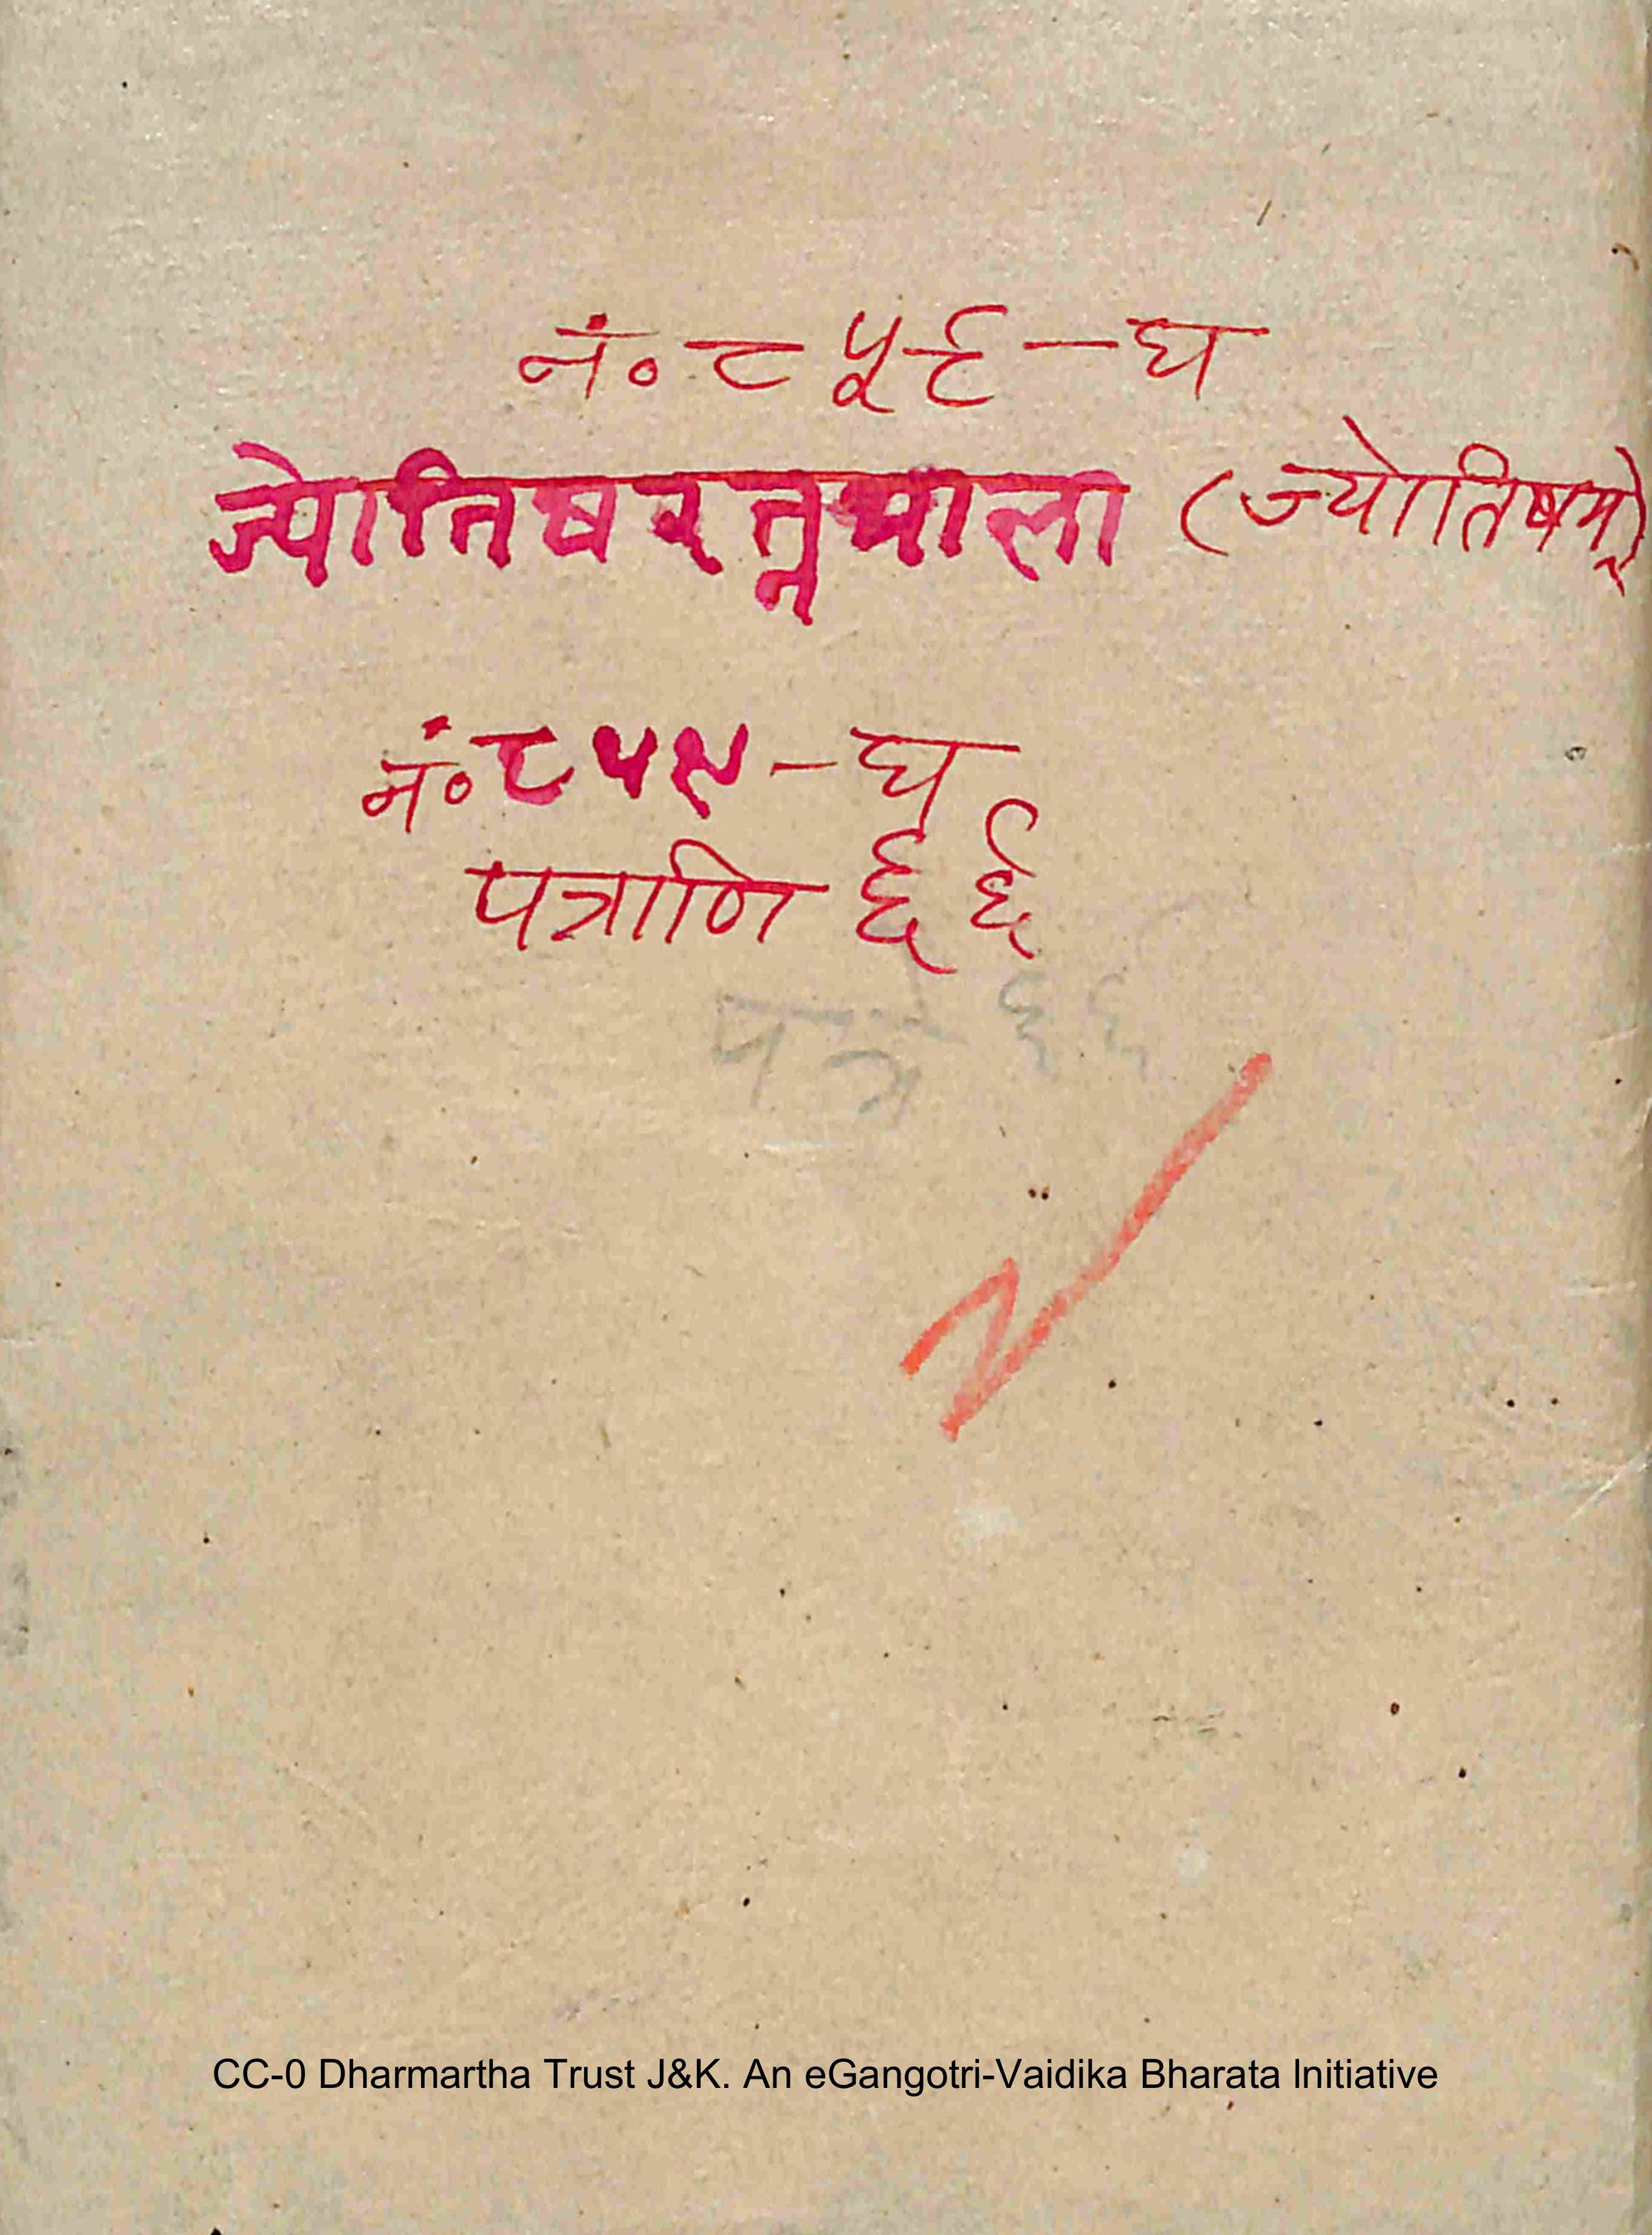 नं० ८५९ - घ
ज्योतिषरत्नमाला (ज्योतिषम्)
नं० ८५९ - घ
पत्राणि ६६
पत्रे ६६
CC-0 Dharmartha Trust J&K. An eGangotri-Vaidika Bharata Initiative